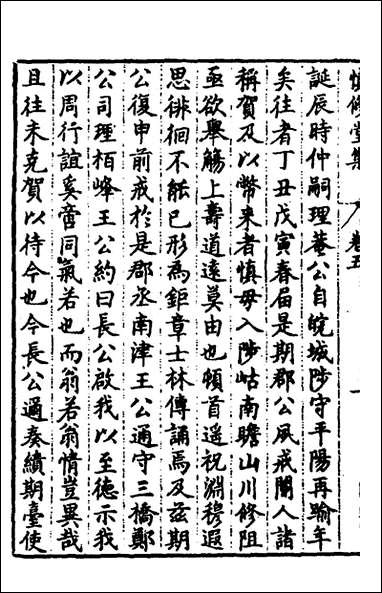 慎修堂集 卷五
誕辰時仲嗣理菴公自皖城陟守平陽再踰年
矣往者丁丑戊寅春届是期郡公夙戒閽人諸
稱賀及以幣来者慎毋入陟岵南瞻山川修阻
亟欲舉觴上壽道遠莫由也頓首遥祝淵穆遐
思徘徊不能已形為鉅章士林傳誦焉及兹期
公復申前戒於是郡丞南津王公通守三橋鄭
公司理栢峰王公約曰長公啟我以至德示我
以周行誼奚啻同氣若也而翁若翁情豈異哉
且往未克賀以待今也今長公適奏績期臺使